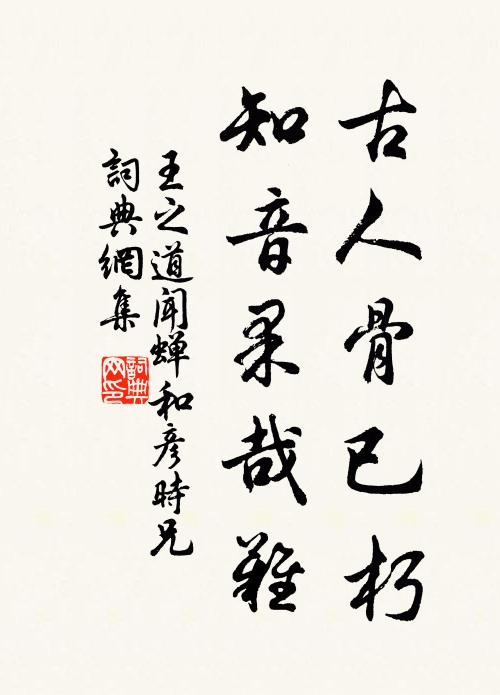 古人骨已朽
知音果哉難
王之道聞蝉和彦時兄
詞典網集
詞典網印